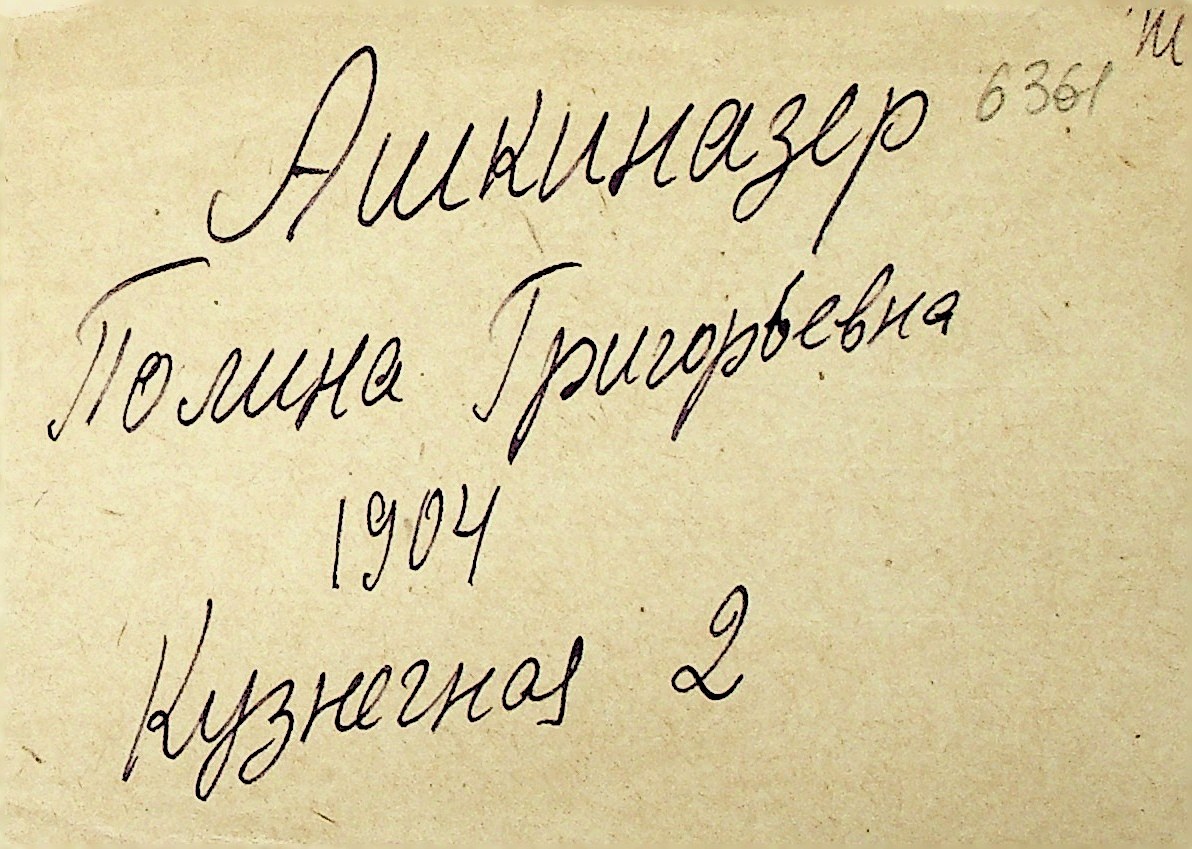 Ш
6361
Ашкиназер
Полина Григорьевна
1904
Кузнечная 2